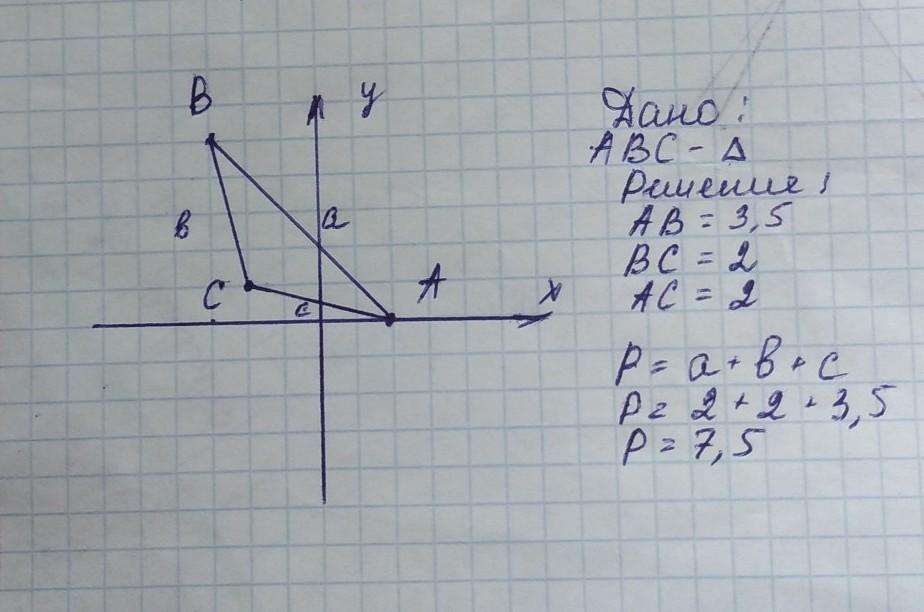 B
y
в
a
C
c
A
x
Дано:
ABC - Δ
Решение:
AB = 3,5
BC = 2
AC = 2
P = a + в + c
P = 2 + 2 + 3,5
P = 7,5